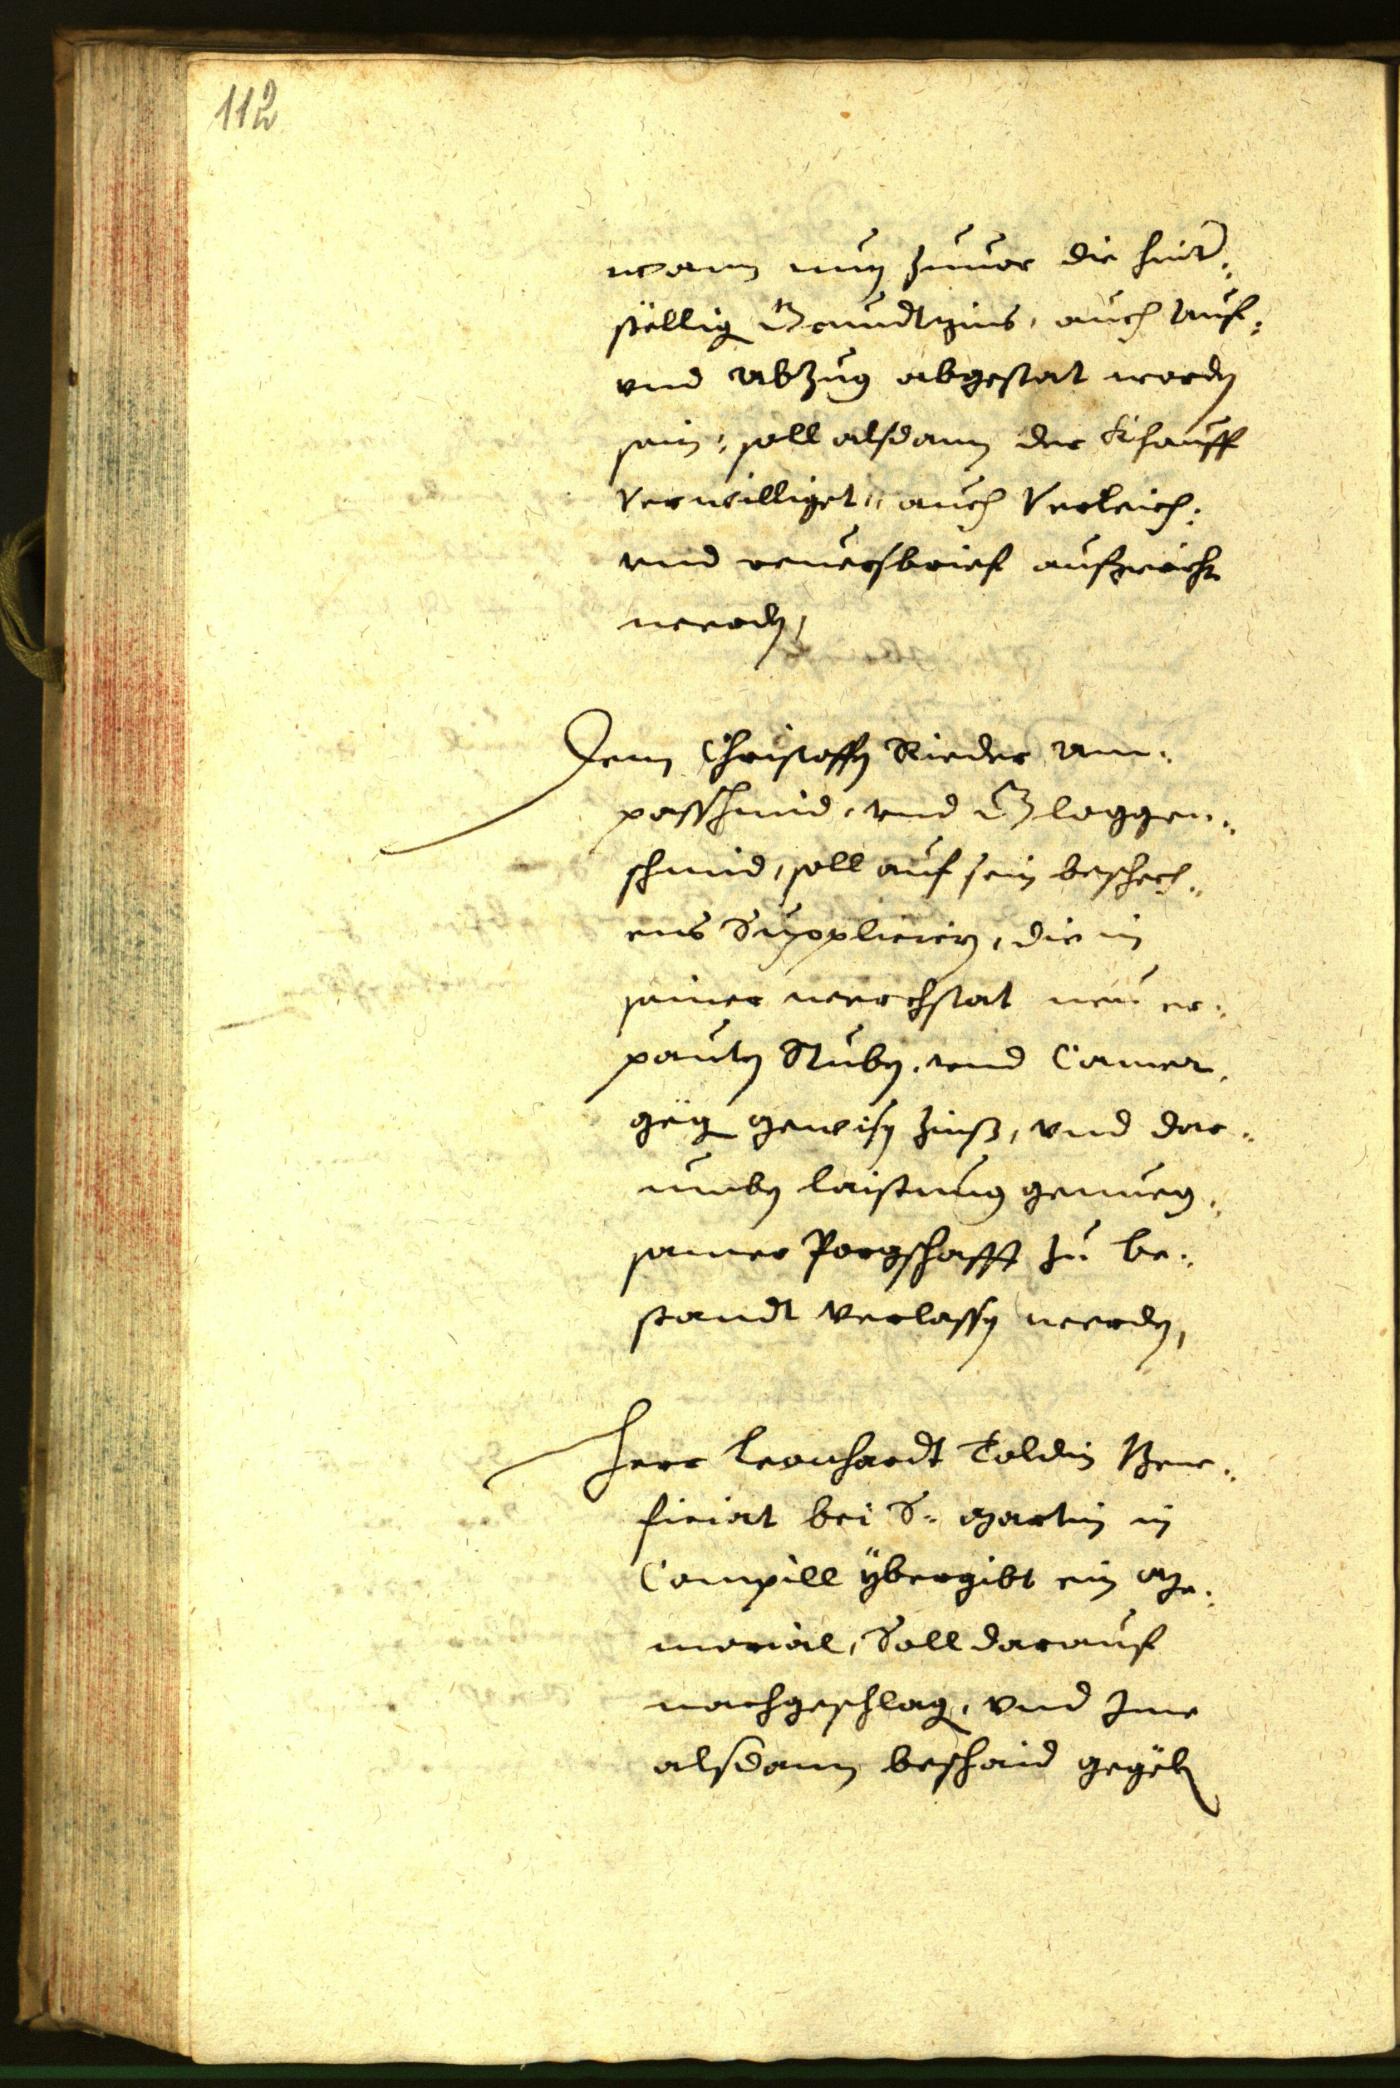 112
wann nun zuuor die hinder¬
stellig Grundtzins, auch Auf¬
vnd Abzug abgestat worden
sein, soll alsdann der Khauff
verwilliget, auch Verleich¬
vnd reuersbrief aufgericht
werden,
Dem Christoffen Rieder Am¬
possschmid, vnd Gloggen¬
schmid, soll auf sein beschech¬
ens Supplicirn, die in
seiner werchstat neu er¬
pauten Stuben, vnd Camer,
gegen gewisen Zinß, vnd dar¬
umben laistung genueg¬
samer Porgschafft zu be¬
standt verlassen werden,
Herr Leonhardt Toldin Bene¬
ficiat bei S. Martin in
Campill ybergibt ein Me¬
morial, Soll darauf
nachgeschlagen, vnd Ime
alsdann beschaid gegeben